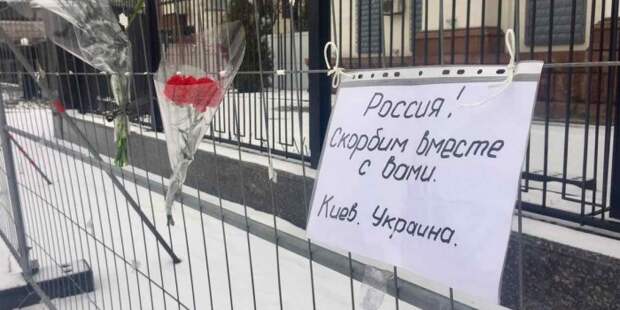 Россия!
Скорбим вместе
с вами.
Киев. Украина.